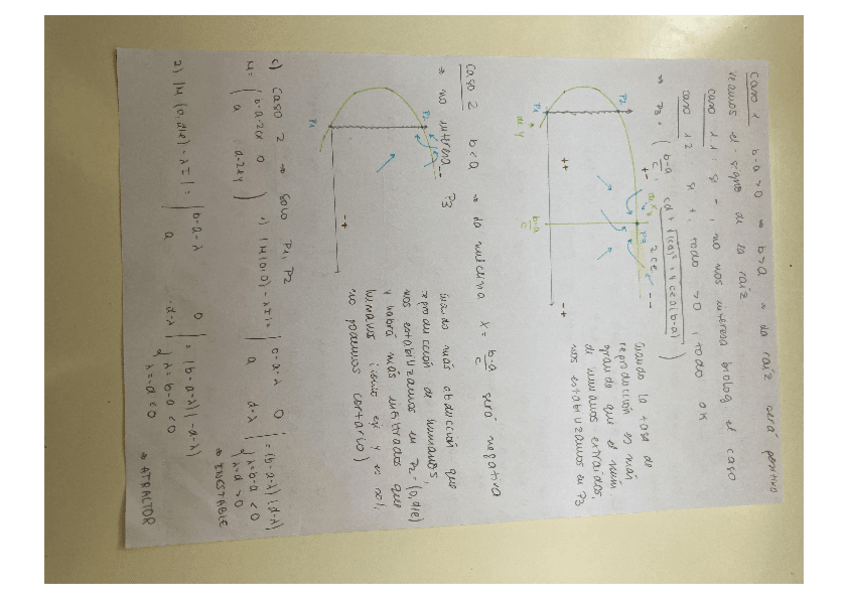 Caso 1 b-a>0 ⇒ b>a ⇒ la raíz será positiva
veamos el signo de la raíz
caso 1.1: si -, no nos interesa biolog el caso
caso 1.2 si +: todo >0, todo ok
⇒ P3 = ( b-a/c , cd + √((cd)² + 4cea(b-a)) / 2ce )
P1
P2
P3
++
+-
--
-+
b-a/c
cuando la tasa de
reproducción es más
grande que el núm
de humanos extraídos,
nos estabilizamos en P3
Caso 2 b<a ⇒ la nulclina x = b-a/c será negativa
⇒ no interesa P3
P1
P2
--
-+
cuando más abducción que
reproducción de humanos,
nos estabilizamos en P2=(0,d/e)
y habrá más infiltrados que
humanos (como eje y es ncl,
no podemos cortarlo)
c) Caso 2 ⇒ solo P1, P2
M = ( b-a-2cx 0
a d-2ey )
1) |M(0,0)-λI| = | b-a-λ 0
a d-λ | = (b-a-λ)(d-λ)
λ=b-a<0
λ=d>0
⇒ INESTABLE
2) |M(0,d/e)-λI| = | b-a-λ 0
a -d-λ | = (b-a-λ)(-d-λ)
λ=b-a<0
⇒ ATRACTOR